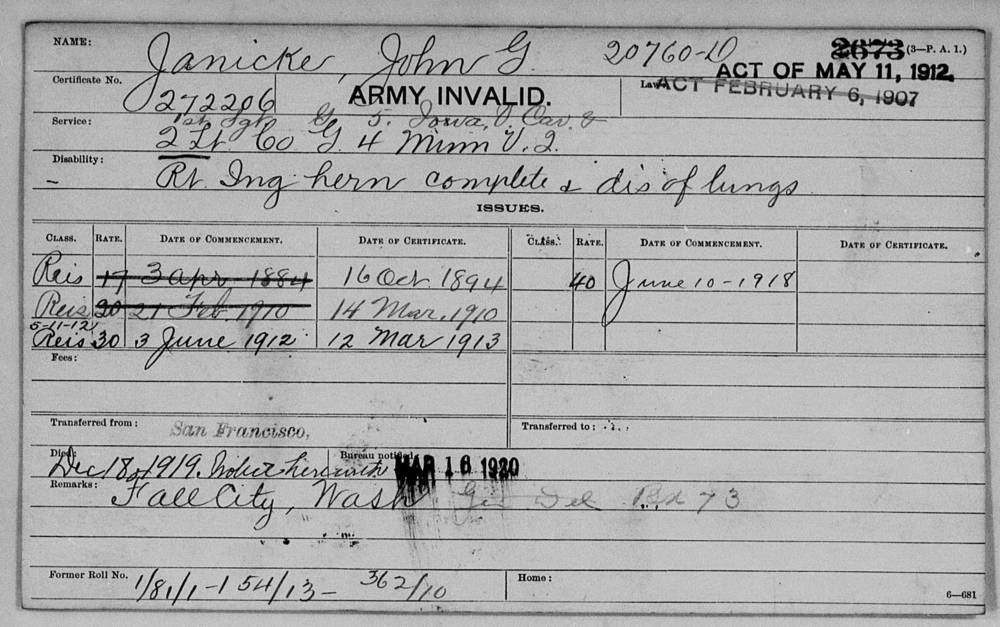 NAME: Janicke, John G. 20760-D 2673 (3—P. A. I.)
ACT OF MAY 11, 1912.
Certificate No. 272206 ARMY INVALID. Law: ACT FEBRUARY 6, 1907
1st Sgt G 5. Iowa, V. Cav. &
Service: 2 Lt Co G. 4 Minn V. I.
Disability: – Rt. Ing hern complete & dis of lungs
ISSUES.
CLASS. RATE. DATE OF COMMENCEMENT. DATE OF CERTIFICATE. CLASS. RATE. DATE OF COMMENCEMENT. DATE OF CERTIFICATE.
Reis 17 3 Apr 1884 16 Oct 1894 40 June 10-1918
Reis 20 21 Feb. 1910 14 Mar. 1910
5-11-12
Reis 30 3 June 1912 12 Mar 1913
Fees:
Transferred from: San Francisco, Transferred to:
Died: Dec 18, 1919. Notice herewith Bureau notified MAR 16 1920
Remarks: Fall City, Wash Gen Del Bx 73
Former Roll No. 1/81/1-154/13- 362/10 Home:
6—681